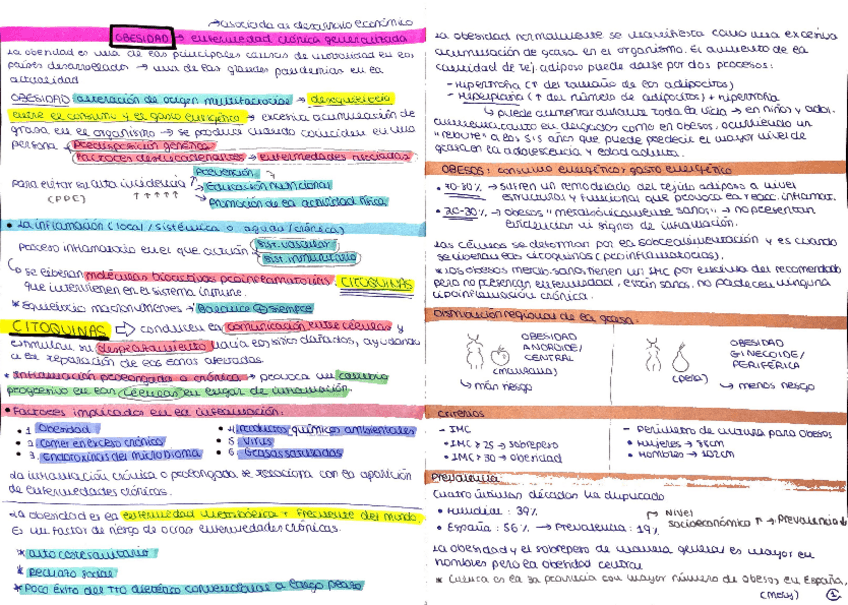 → asociada al desarrollo económico
OBESIDAD → enfermedad crónica generalizada
La obesidad es una de las principales causas de mortalidad en los
países desarrollados → una de las grandes pandemias en la
actualidad
OBESIDAD alteración de origen multifactorial → desequilibrio
entre el consumo y el gasto energético → excesiva acumulación de
grasa en el organismo → se produce cuando coinciden en una
persona Predisposición genética
Factores desencadenantes → enfermedades asociadas
Prevención
Para evitar su alta incidencia → Educación nutricional
(PPE) ↑↑↑↑↑ Promoción de la actividad física
• La inflamación (local / sistémica o aguda / crónica)
Proceso inflamatorio en el que actúan sist. vascular
sist. inmunitario
se liberan moléculas bioactivas proinflamatorias, CITOQUINAS
que intervienen en el sistema inmune.
* Equilibrio macronutrientes → Balance ⊕ siempre
CITOQUINAS ⇨ conducen la comunicación entre células y
estimulan su desplazamiento hacia los sitios dañados, ayudando
a la reparación de las zonas afectadas.
* Inflamación prolongada o crónica → provoca un cambio
progresivo en las células en lugar de inflamación.
• Factores implicados en la inflamación:
• 1. Obesidad
• 2. Comer en exceso crónico
• 3. Endotoxinas del microbioma
• 4. Productos químicos ambientales
• 5. Virus
• 6. Grasas saturadas
La inflamación crónica o prolongada se relaciona con la aparición
de enfermedades crónicas.
La obesidad es la enfermedad metabólica + frecuente del mundo.
Es un factor de riesgo de otras enfermedades crónicas.
* Alto coste sanitario
* Rechazo social
* Poco éxito del TTO dietético convencional a largo plazo
La obesidad normalmente se manifiesta como una excesiva
acumulación de grasa en el organismo. El aumento de la
cantidad de tej. adiposo puede darse por dos procesos:
- Hipertrofia (↑ del tamaño de los adipocitos)
- Hiperplasia (↑ del número de adipocitos) + hipertrofia
↳ puede aumentar durante toda la vida → en niños y adol.
aumenta tanto en delgados como en obesos, ocurriendo un
"rebote" a los 5.5 años que puede predecir el mayor nivel de
grasa en la adolescencia y edad adulta.
OBESOS: consumo energético > gasto energético
• 70-80% → sufren un remodelado del tejido adiposo a nivel
estructural y funcional que provoca la reacc. inflamat.
• 20-30% → obesos "metabólicamente sanos" → no presentan
evidencias ni signos de inflamación.
Las células se deforman por la sobrealimentación y es cuando
se liberan las citoquinas (proinflamatorias).
* Los obesos metab. sanos tienen un IMC por encima del recomendado
pero no presentan enfermedad, están sanos, no padecen ninguna
lipoinflamación crónica.
Distribución regional de la grasa:
OBESIDAD
ANDROIDE/
CENTRAL
(manzana)
↳ más riesgo
OBESIDAD
GINECOIDE/
PERIFÉRICA
(pera)
↳ menos riesgo
Criterios
- IMC
• IMC > 25 → sobrepeso
• IMC > 30 → obesidad
- Perímetro de cintura para obesos
• Mujeres → 88cm
• Hombres → 102cm
Prevalencia:
Cuatro últimas décadas ha duplicado
• Mundial: 39%
• España: 56% → Prevalencia: 19%
Nivel
socioeconómico ↑ → Prevalencia ↓
La obesidad y el sobrepeso de manera general es mayor en
hombres pero la obesidad central
* Cuenca es la 3a provincia con mayor número de obesos en España,
①